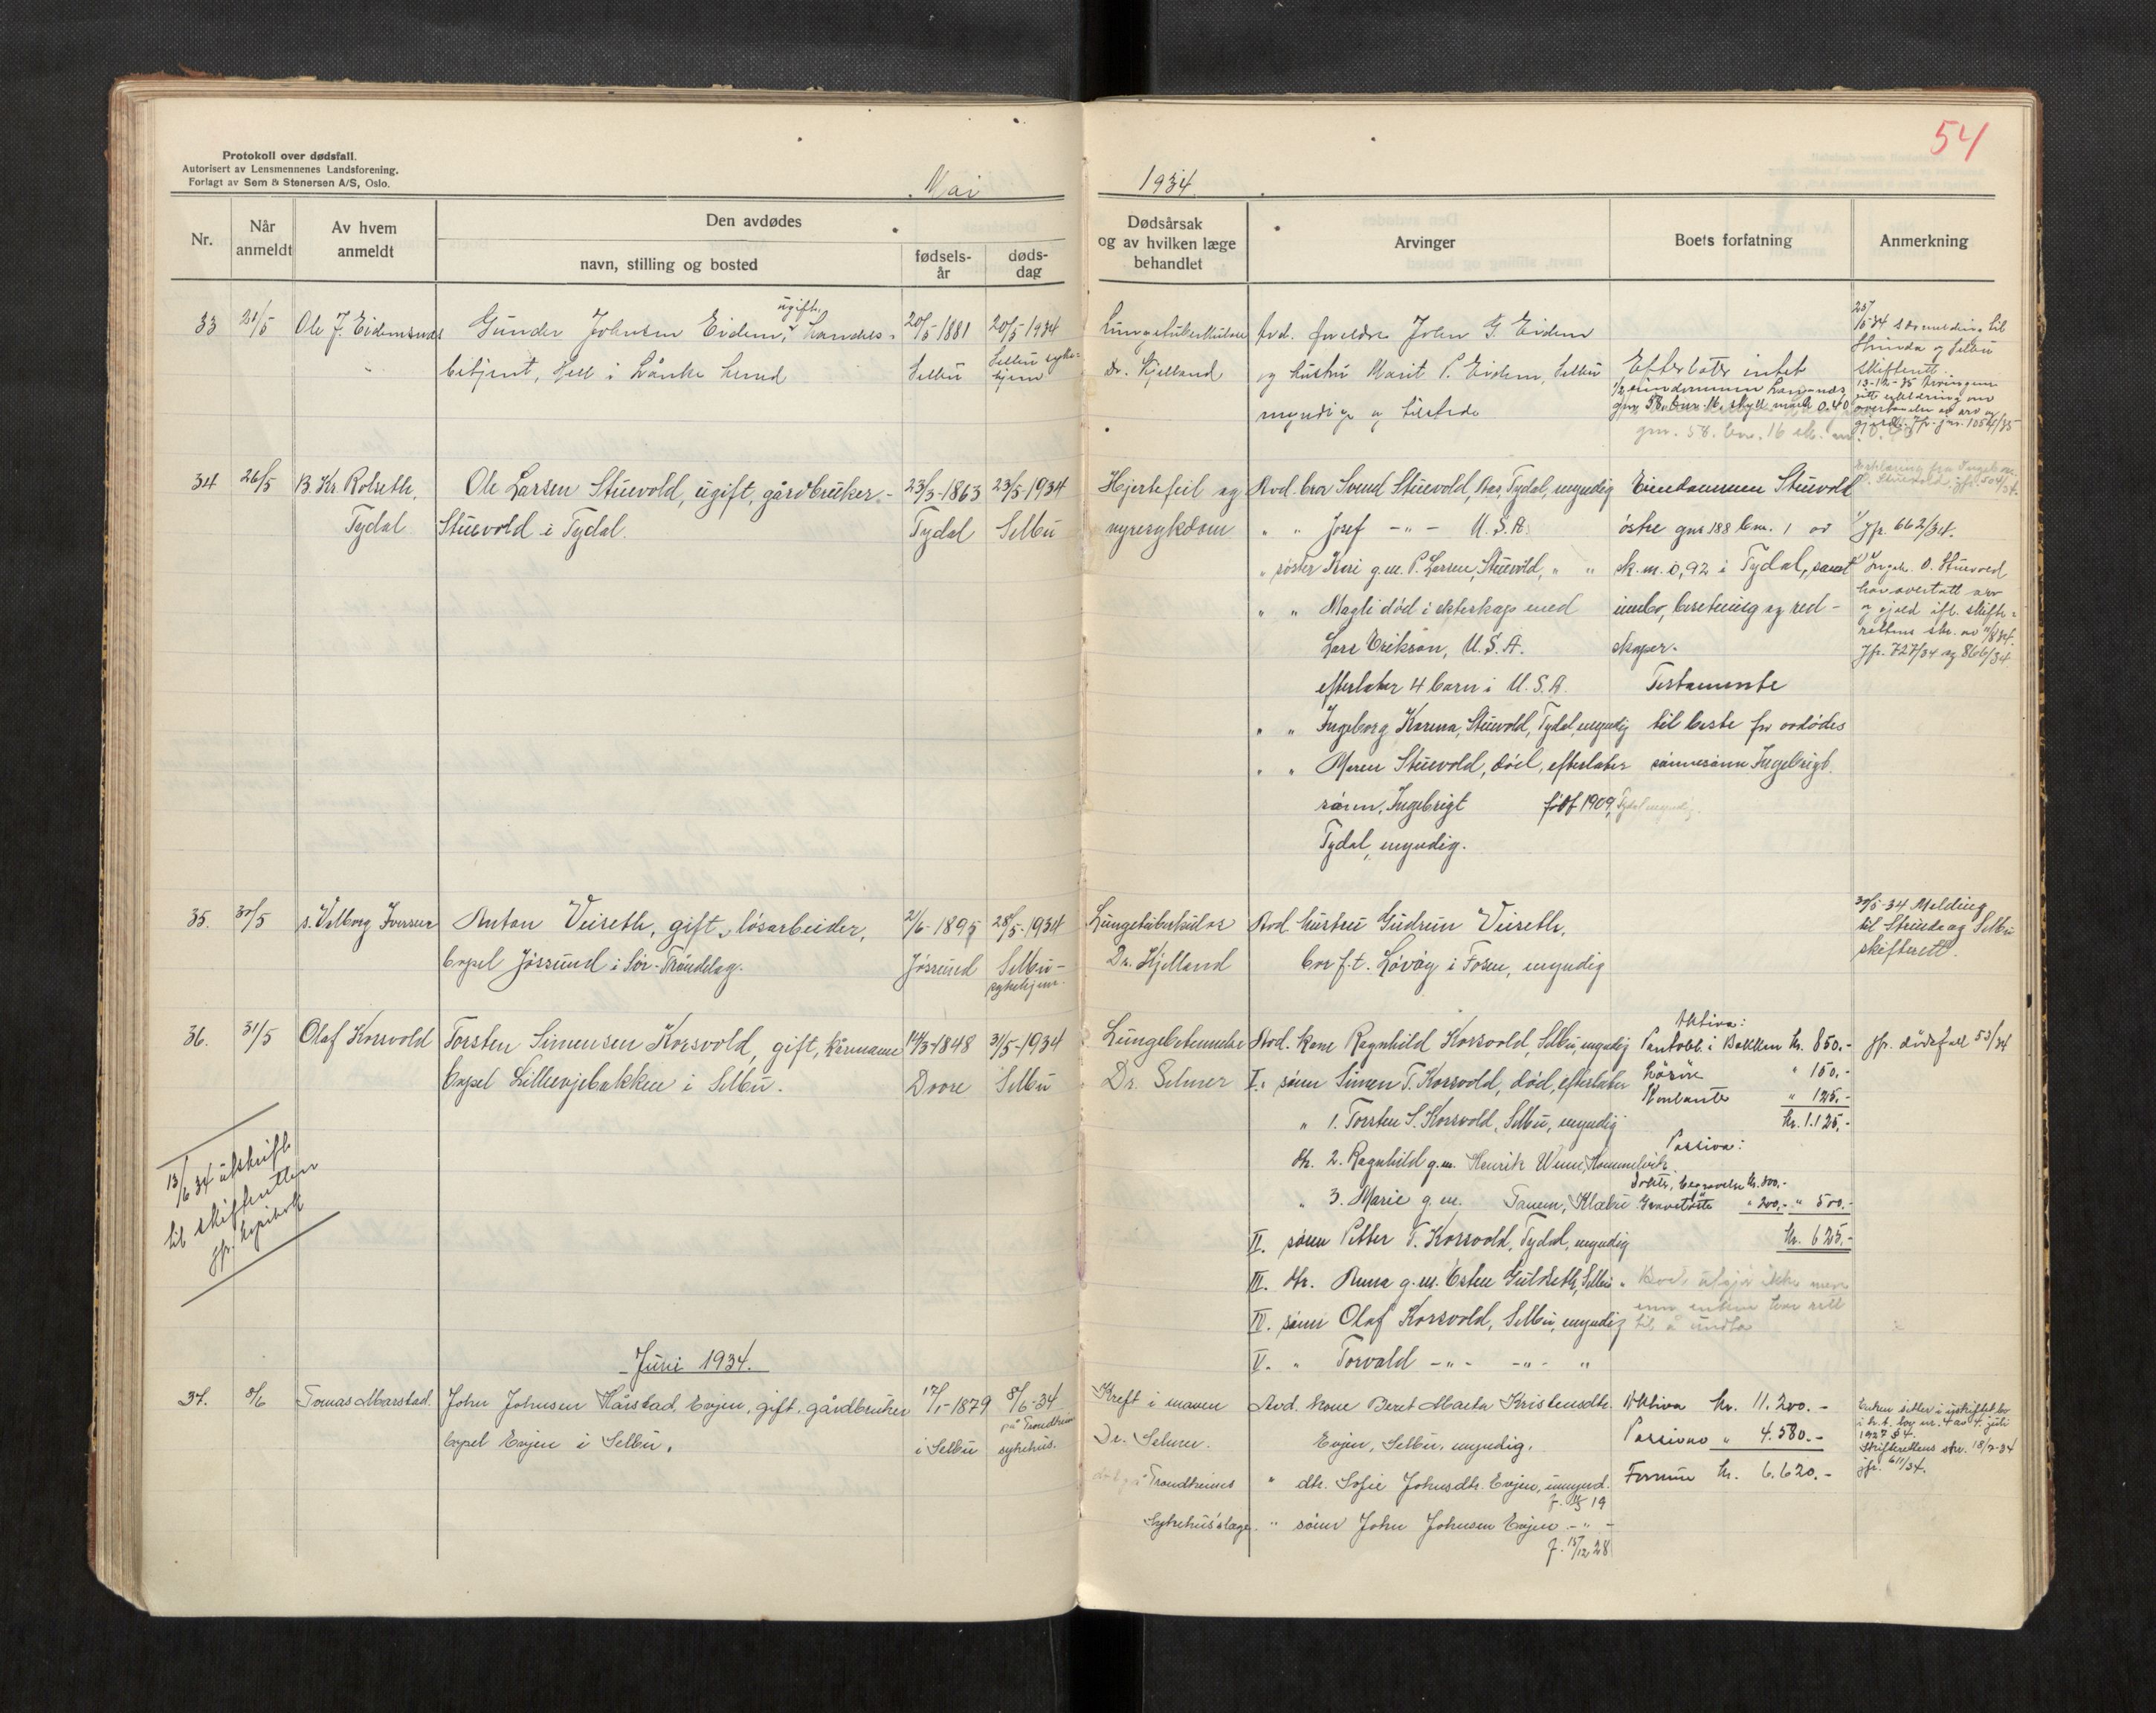 54
Protokoll over dødsfall.
Autorisert av Lensmennenes Landsforening.
Forlagt av Sem & Stenersen A/S, Oslo.
Mai 1934
Nr.
Når anmeldt
Av hvem anmeldt
Den avdødes
navn, stilling og bosted
fødsels-år
døds-dag
Dødsårsak og av hvilken læge behandlet
Arvinger
Boets forfatning
Anmerkning
33 21/5 Ole J. Eidemsnes Gunder Johnsen Eidem, ugift, handels- 20/5 1881 20/5 1934
betjent, Hell i Lånke herred Selbu Selbu sykehjem
Lungetuberkulose
Dr. Kjelland
Avd. foreldre John G. Eidem
og hustru Marit P. Eidem, Selbu
myndige og tilstede
Efterlater intet
1/2 eiendommen
gnr. 58. bnr. 16. skyll mark 0.40
gnr. 58. bnr. 16
25/5-34 til
Strinda og Selbu
skifterett.
13-12-35 Arvingene
jnr. 1054/35
34 26/5 B. Kr. Rolseth, Ole Larsen Stuevold, ugift, gårdbruker - 23/3-1863 23/5-1934
Tydal Stuevold i Tydal. Tydal Selbu
Hjertefeil og
nyresykdom
Avd. bror Svend Stuevold, Aas, Tydal, myndig
" " Josef -"- U.S.A.
" søster Kari g.m. P. Larsen, Stuevold, " "
" " Magli død i ekteskap med
Lars Erikson, U.S.A.
efterlater 4 barn i U.S.A.
" " Ingeborg Karina, Stuevold, Tydal, myndig
" " Maren Stuevold, død, efterlater
sønn, Ingebrigt født 1909,
Tydal, myndig.
Eiendommen Stuevold
østre gnr 188 bnr. 1 av
sk. m. 0,92 i Tydal, samt
innbo, besetning og red-
skaper.
Testamente
til beste for avdødes
sønnesønn Ingebrigt.
Erklæring fra Ingebor
O. Stuevold, jfr. 504/34.
jfr. 662/34.
Ingeb. O. Stuevold
har overtatt arv
og gjeld ifl. skifte-
rettens skr. av
Jfr. 727/34 og 866/34
35. 30/5 s. Valborg Iversen Anton Veiseth, gift, løsarbeider, 2/6-1895 28/5-1934
bopel Jøssund i Sør-Trøndelag. Jøssund Selbu-
sykehjem.
Lungetuberkulose
Dr. Kjelland
Avd. hustru Gudrun Veiseth,
bor f.t. Løvøy i Fosen, myndig
30/5-34 Melding
til Strinda og Selbu
skifterett.
36. 31/5 Olaf Korsvold Torsten Simensen Korsvold, gift, kårmann 14/3-1848 31/5-1934
bopel Lillevjebakken i Selbu. Dovre Selbu
Lungebetennelse
Dr. Selmer
Avd. kone Ragnhild Korsvold, Selbu, myndig
I. sønn Simen T. Korsvold, død, efterlater
" 1. Torsten S. Korsvold, Selbu, myndig
dtr. 2. Ragnhild g.m. Henrik Wenn, Hommelvik
" 3. Marie g.m. Tanem, Klæbu
II. sønn Petter T. Korsvold, Tydal, myndig
III. dtr. Anna g.m. Esten Guldseth, Selbu "
IV. sønn Olaf Korsvold, Selbu, myndig
V. " Torvald -"- -"- "
Aktiva:
Pantobl. i Bakken kr. 850.-
Løsøre " 150.-
Kontanter " 125.-
kr. 1.125.-
Passiva:
Doktor, begravelse kr. 300.-
Gravstøtte " 200.- " 500.-
kr. 625.-
Boet utgjør ikke mere
enn enken har rett
til å undta
jfr. dødsfall 53/34
13/6 34 utskrift
til skifteretten
jfr. kopibok
Juni 1934.
37. 8/6 Tomas Marstad. John Johnsen Hårstad, Evjen, gift, gårdbruker 17/1-1879 8/6-34
på Trondheim
bopel Evjen i Selbu. i Selbu sykehus.
Kreft i maven
Dr. Selmer.
Trondheims
Sykehus's læge.
Avd. kone Beret Marta Kristensdtr.
Evjen, Selbu, myndig.
" dtr. Sofie Johnsdtr. Evjen, umynd.
" sønn John Johnsen Evjen -"-
f. 15/12 28
Aktiva kr. 11.200.-
Passiva " 4.580.-
Formue kr. 6.620.-
Enken sitter i uskiftet bo
i h.t. lov nr. 4 av 4. juli
1927 § 4.
Skifterettens skr. 18/7-34
jfr. 611/34.